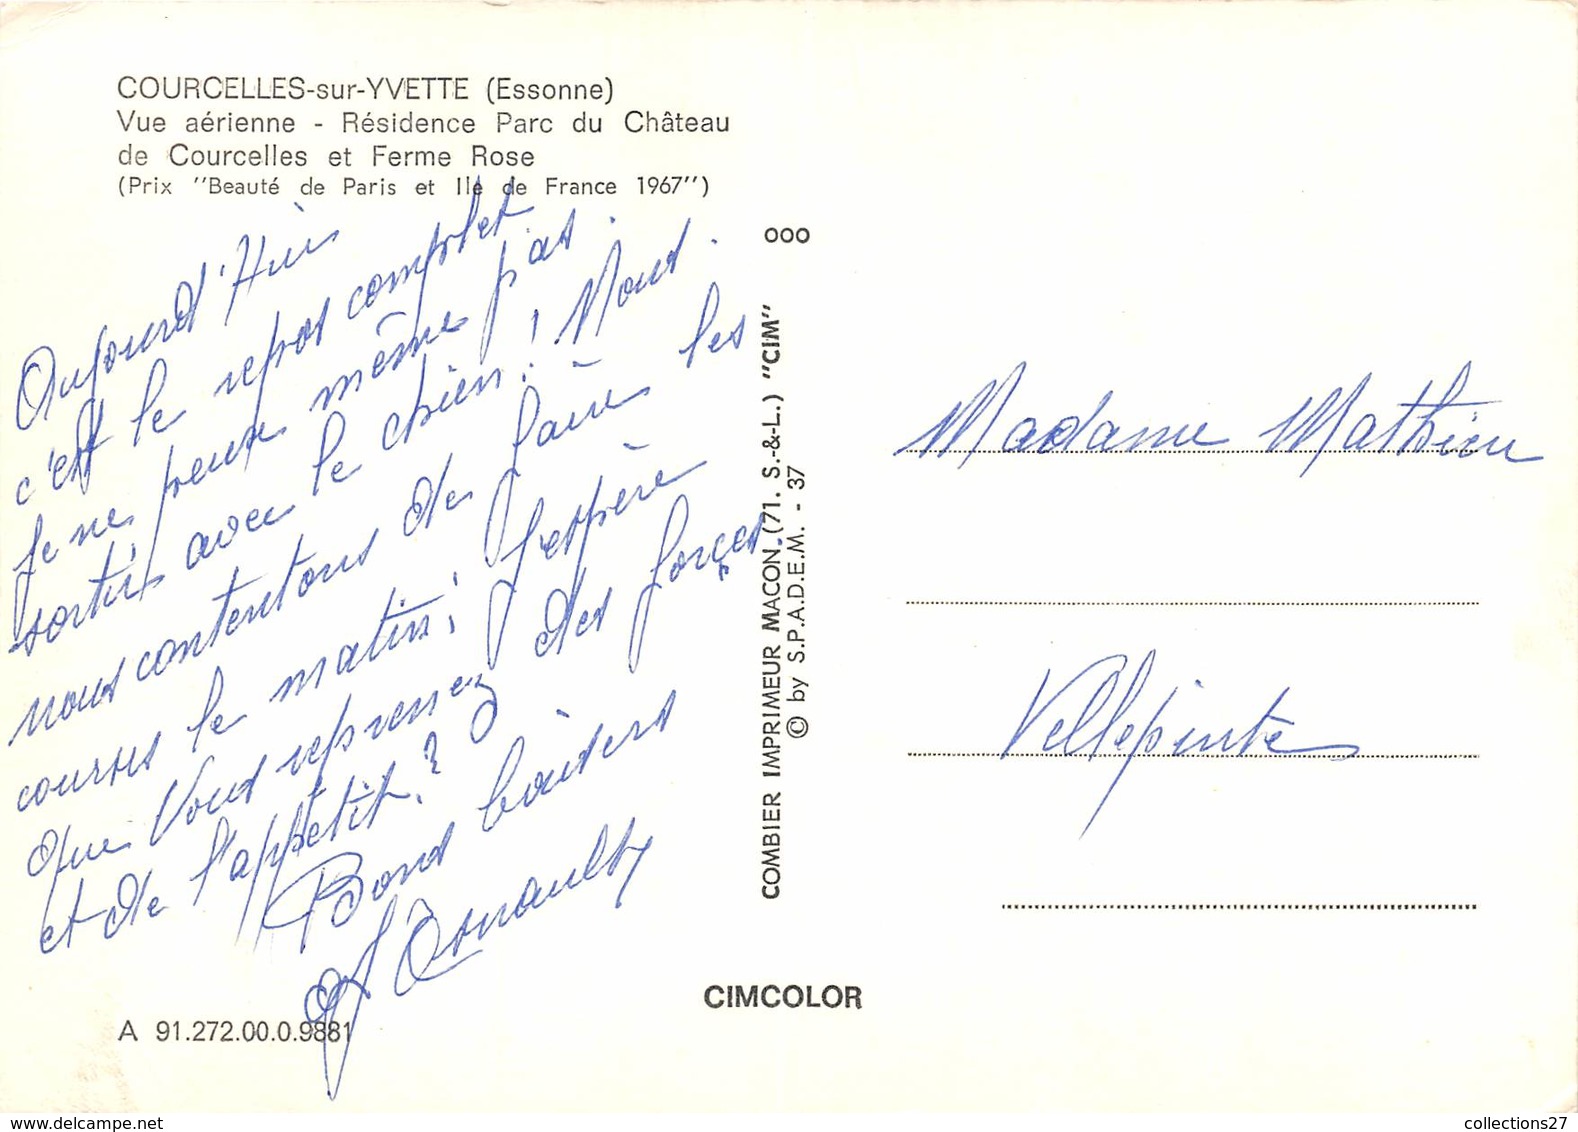 COURCELLES-sur-YVETTE (Essonne)
Vue aérienne - Résidence Parc du Château
de Courcelles et Ferme Rose
(Prix "Beauté de Paris et Ile de France 1967")
Aujourd'Hui
c'est le repos complet
je ne peux même pas
sortir avec le chien! Nous
nous contentons de faire les
courses le matin; J'espère
que Vous reprenez des forces
et de l'appétit?
Bons baisers
Arnault
A 91.272.00.0.9881
ooo
COMBIER IMPRIMEUR MACON (71. S.-&-L.) "CIM"
© by S.P.A.D.E.M. - 37
CIMCOLOR
Madame Mathieu
Villepinte
collections27